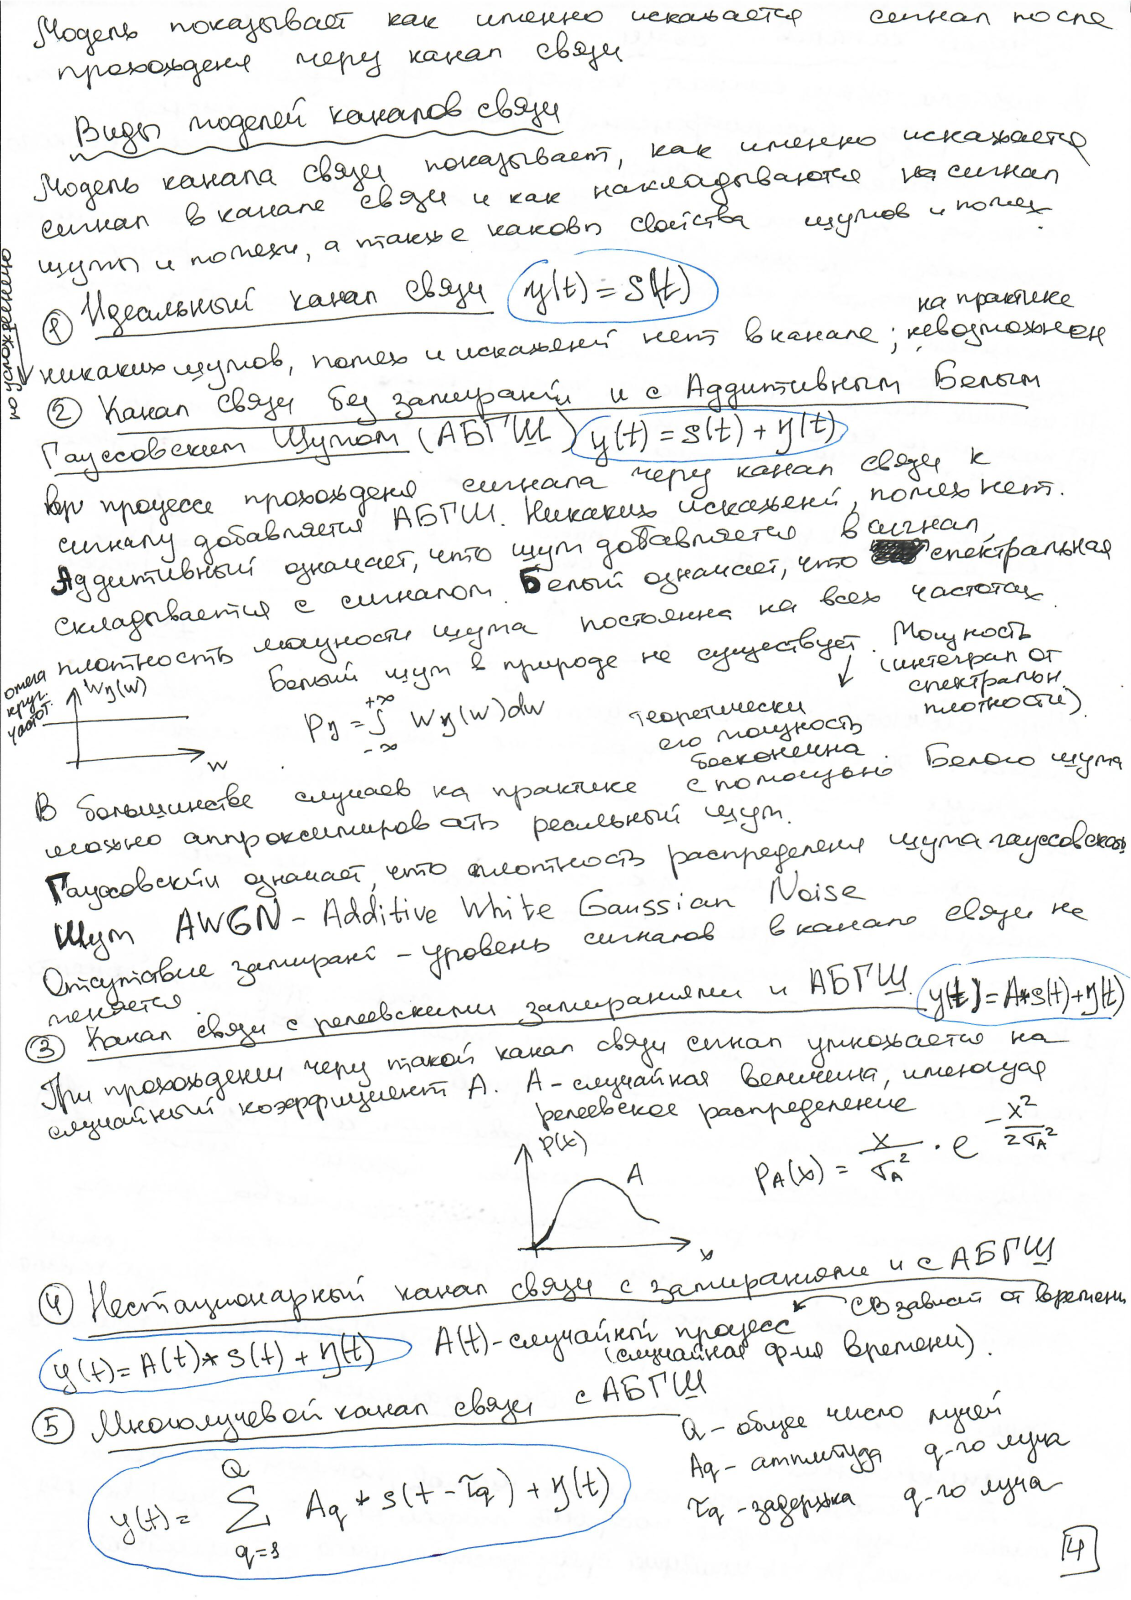 Модель показывает как именно искажается сигнал после
прохождения через канал связи
Виды моделей каналов связи
Модель канала связи показывает, как именно искажается
сигнал в канале связи и как накладываются на сигнал
шумы и помехи, а также каковы свойства шумов и помех.
по усложнению
① Идеальный канал связи y(t) = S(t)
никаких шумов, помех и искажений нет в канале; на практике невозможен
② Канал связи без замираний и с Аддитивным Белым
Гауссовским Шумом (АБГШ) y(t) = s(t) + η(t)
в процессе прохождения сигнала через канал связи к
сигналу добавляется АБГШ. Никаких искажений, помех нет.
Аддитивный означает, что шум добавляется в сигнал,
складывается с сигналом. Белый означает, что спектральная
плотность мощности шума постоянна на всех частотах.
Белый шум в природе не существует. Мощность
(интеграл от
спектральн.
плотности)
омега
круг.
частот.
Wη(w)
w
Pη = ∫ Wη(w)dw
+∞
-∞
теоретически
его мощность
бесконечна.
В большинстве случаев на практике с помощью Белого шума
можно аппроксимировать реальный шум.
Гауссовский означает, что плотность распределения шума гауссовская
Шум AWGN - Additive White Gaussian Noise
Отсутствие замираний - уровень сигналов в канале связи не
меняется
③ Канал связи с релеевскими замираниями и АБГШ. y(t) = A*s(t)+η(t)
При прохождении через такой канал связи сигнал умножается на
случайный коэффициент A. A - случайная величина, имеющая
релеевское распределение
P(x)
A
x
PA(x) = x/σA² · e^(-x²/2σA²)
④ Нестационарный канал связи с замираниями и с АБГШ
СВ зависит от времени
y(t) = A(t)*s(t) + η(t) A(t) - случайный процесс
(случайная ф-ия времени).
⑤ Многолучевой канал связи с АБГШ
Q - общее число лучей
Aq - амплитуда q-го луча
τq - задержка q-го луча
y(t) = Σ Aq * s(t - τq) + η(t)
Q
q=1
4